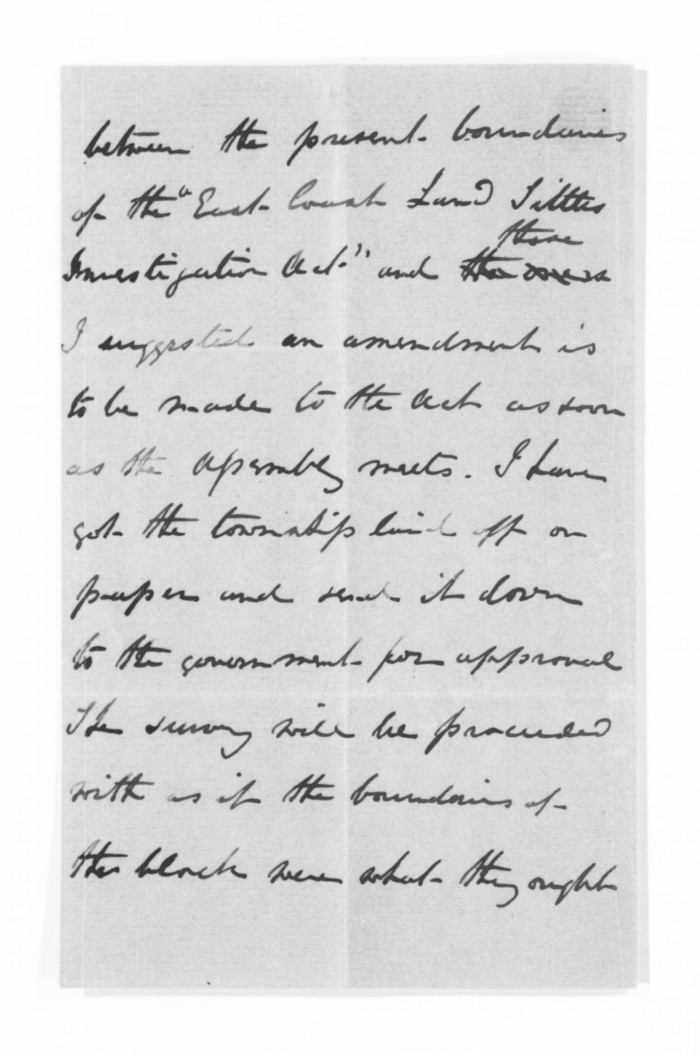 between the present boundaries
of the "East Coast Land Tittles
those
Investigation Act" and the ones
I suggested an amendment is
to be made to the Act as soon
as the Assembly meets. I have
got the township laid off on
paper and send it down
to the government for approval
The survey will be proceeded
with as if the boundaries of
the block were what they ought